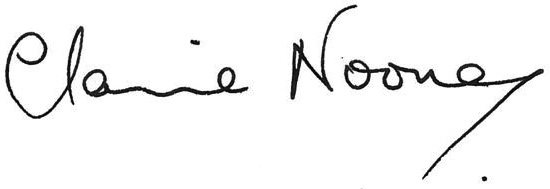 Claire Noone